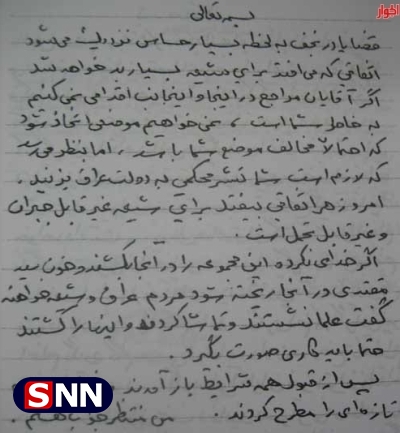 اخبار
بسمه تعالی
قضایا در نجف به لحظه بسیار حساس نزدیک می‌شود
اتفاقی که می‌افتد برای شیعه بسیار بد خواهد شد
اگر آقایان مراجع در اینجا و اینجانب اقدامی نمی‌کنیم
به خاطر شما است، نمی‌خواهیم موضعی اتخاذ شود
که احتمالاً مخالف موضع شما باشد، اما بنظر می‌رسد
که لازم است شما تشر محکمی به دولت عراق بزنید.
امروز هر اتفاقی بیفتد برای شیعه غیر قابل جبران
و غیر قابل تحمل است.
اگر خدای نکرده این مجموعه را در آنجا بکشند و خون سید
مقتدی در آنجا ریخته شود مردم عراق و شیعه خواهند
گفت علما نشستند و تماشا کردند و اینها را کشتند
حتما باید کاری صورت بگیرد.
پس از قبول همه شرایط باز آمدند
تازه‌ای را مطرح کردند. من منتظر
SNN